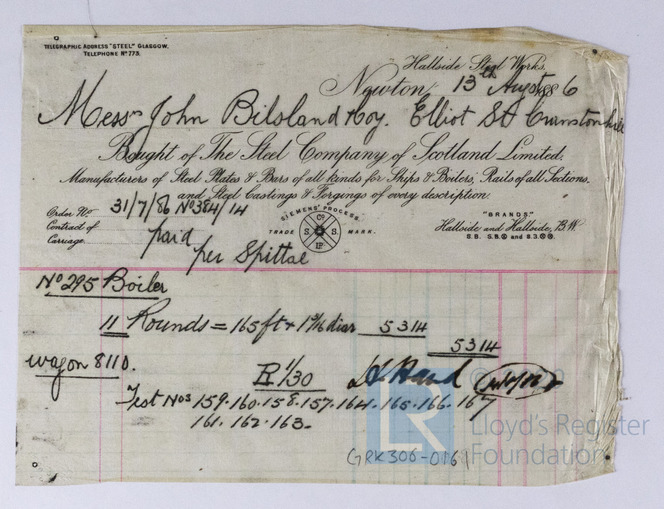 TELEGRAPHIC ADDRESS "STEEL" GLASGOW.
TELEPHONE No 773.
Hallside Steel Works.
Newton, 13th August 1886
Messrs John Bilsland & Coy. Elliot St Cranstonhill
Bought of The Steel Company of Scotland Limited.
Manufacturers of Steel Plates & Bars of all kinds for Ships & Boilers, Rails of all Sections,
and Steel Castings & Forgings of every description.
Order No 31/7/86 No 384/14
Contract of
Carriage paid
per Spittal
SIEMENS' PROCESS.
TRADE MARK.
"BRANDS"
Hallside and Hallside, B.W
No 295 Boiler
11 Rounds = 165 ft x 1 9/16 diar 5314
5314
Wagon 8110.
R 1/30
Test Nos 159. 160. 158. 157. 164. 165. 166. 167
161. 162. 163.
LR
Lloyd's Register
Foundation
GRK306-016